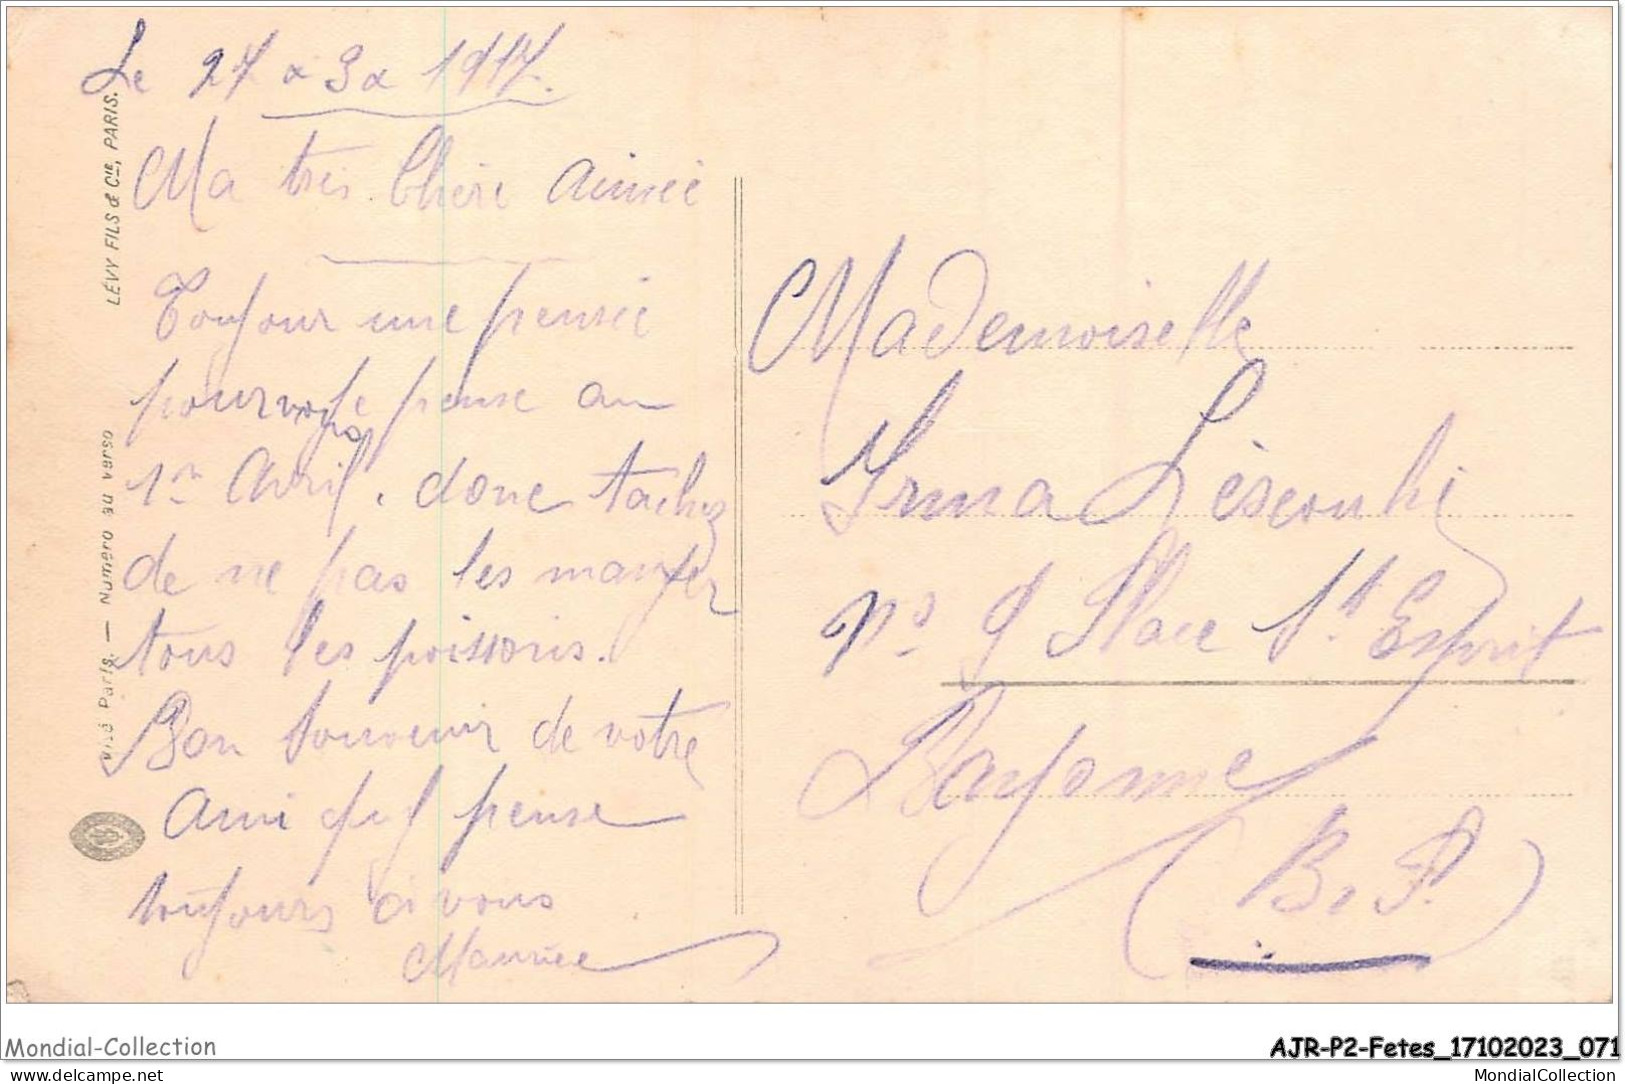 Le 27 x 3 x 1917.
Ma très Chère aimée
Toujour une pensée
pour vous je pense au
1er Avril. donc tachez
de ne pas les manger
tous les poissons.
Bon Souvenir de votre
Ami qui pense
toujours à vous
Maurice
LÉVY FILS & Cie, PARIS.
Visé Paris. — Numéro au verso
Mademoiselle
Irma
No 9 Place St Esprit
Bayonne
(B. P.)
Mondial-Collection
AJR-P2-Fetes_17102023_071
delcampe.net
MondialCollection